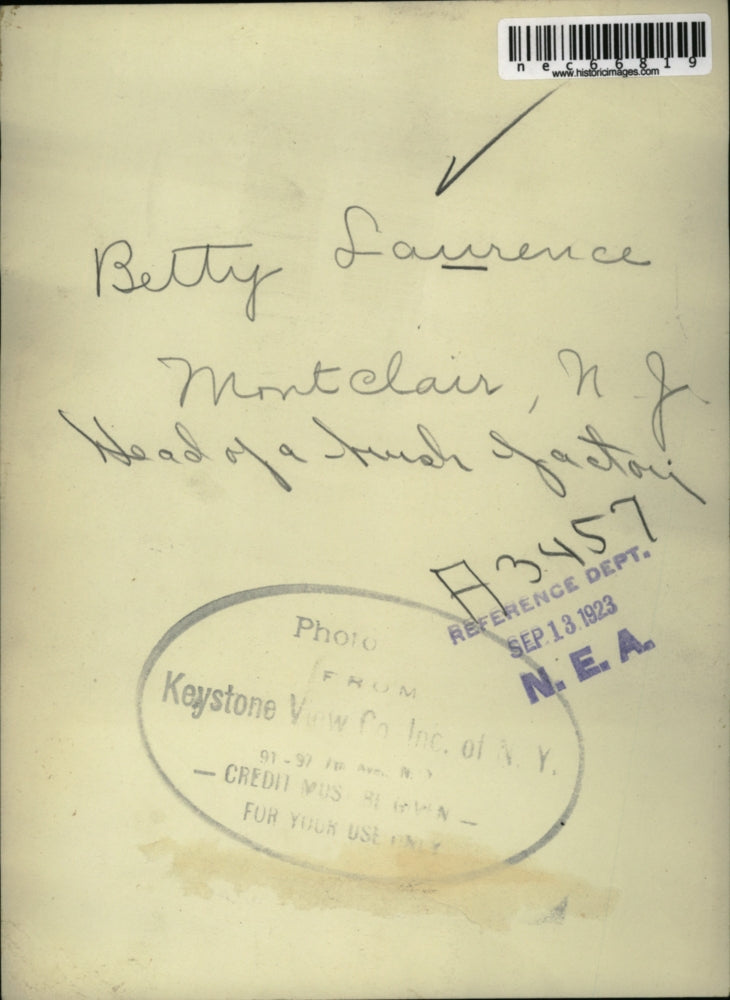 nec66819
www.historicimages.com
Betty Laurence
Montclair, N J
Head of a brush factory
A3457
REFERENCE DEPT.
SEP. 13. 1923
N. E. A.
Photo
FROM
Keystone View Co. Inc. of N. Y.
CREDIT MUST BE GIVEN
FOR YOUR USE ONLY